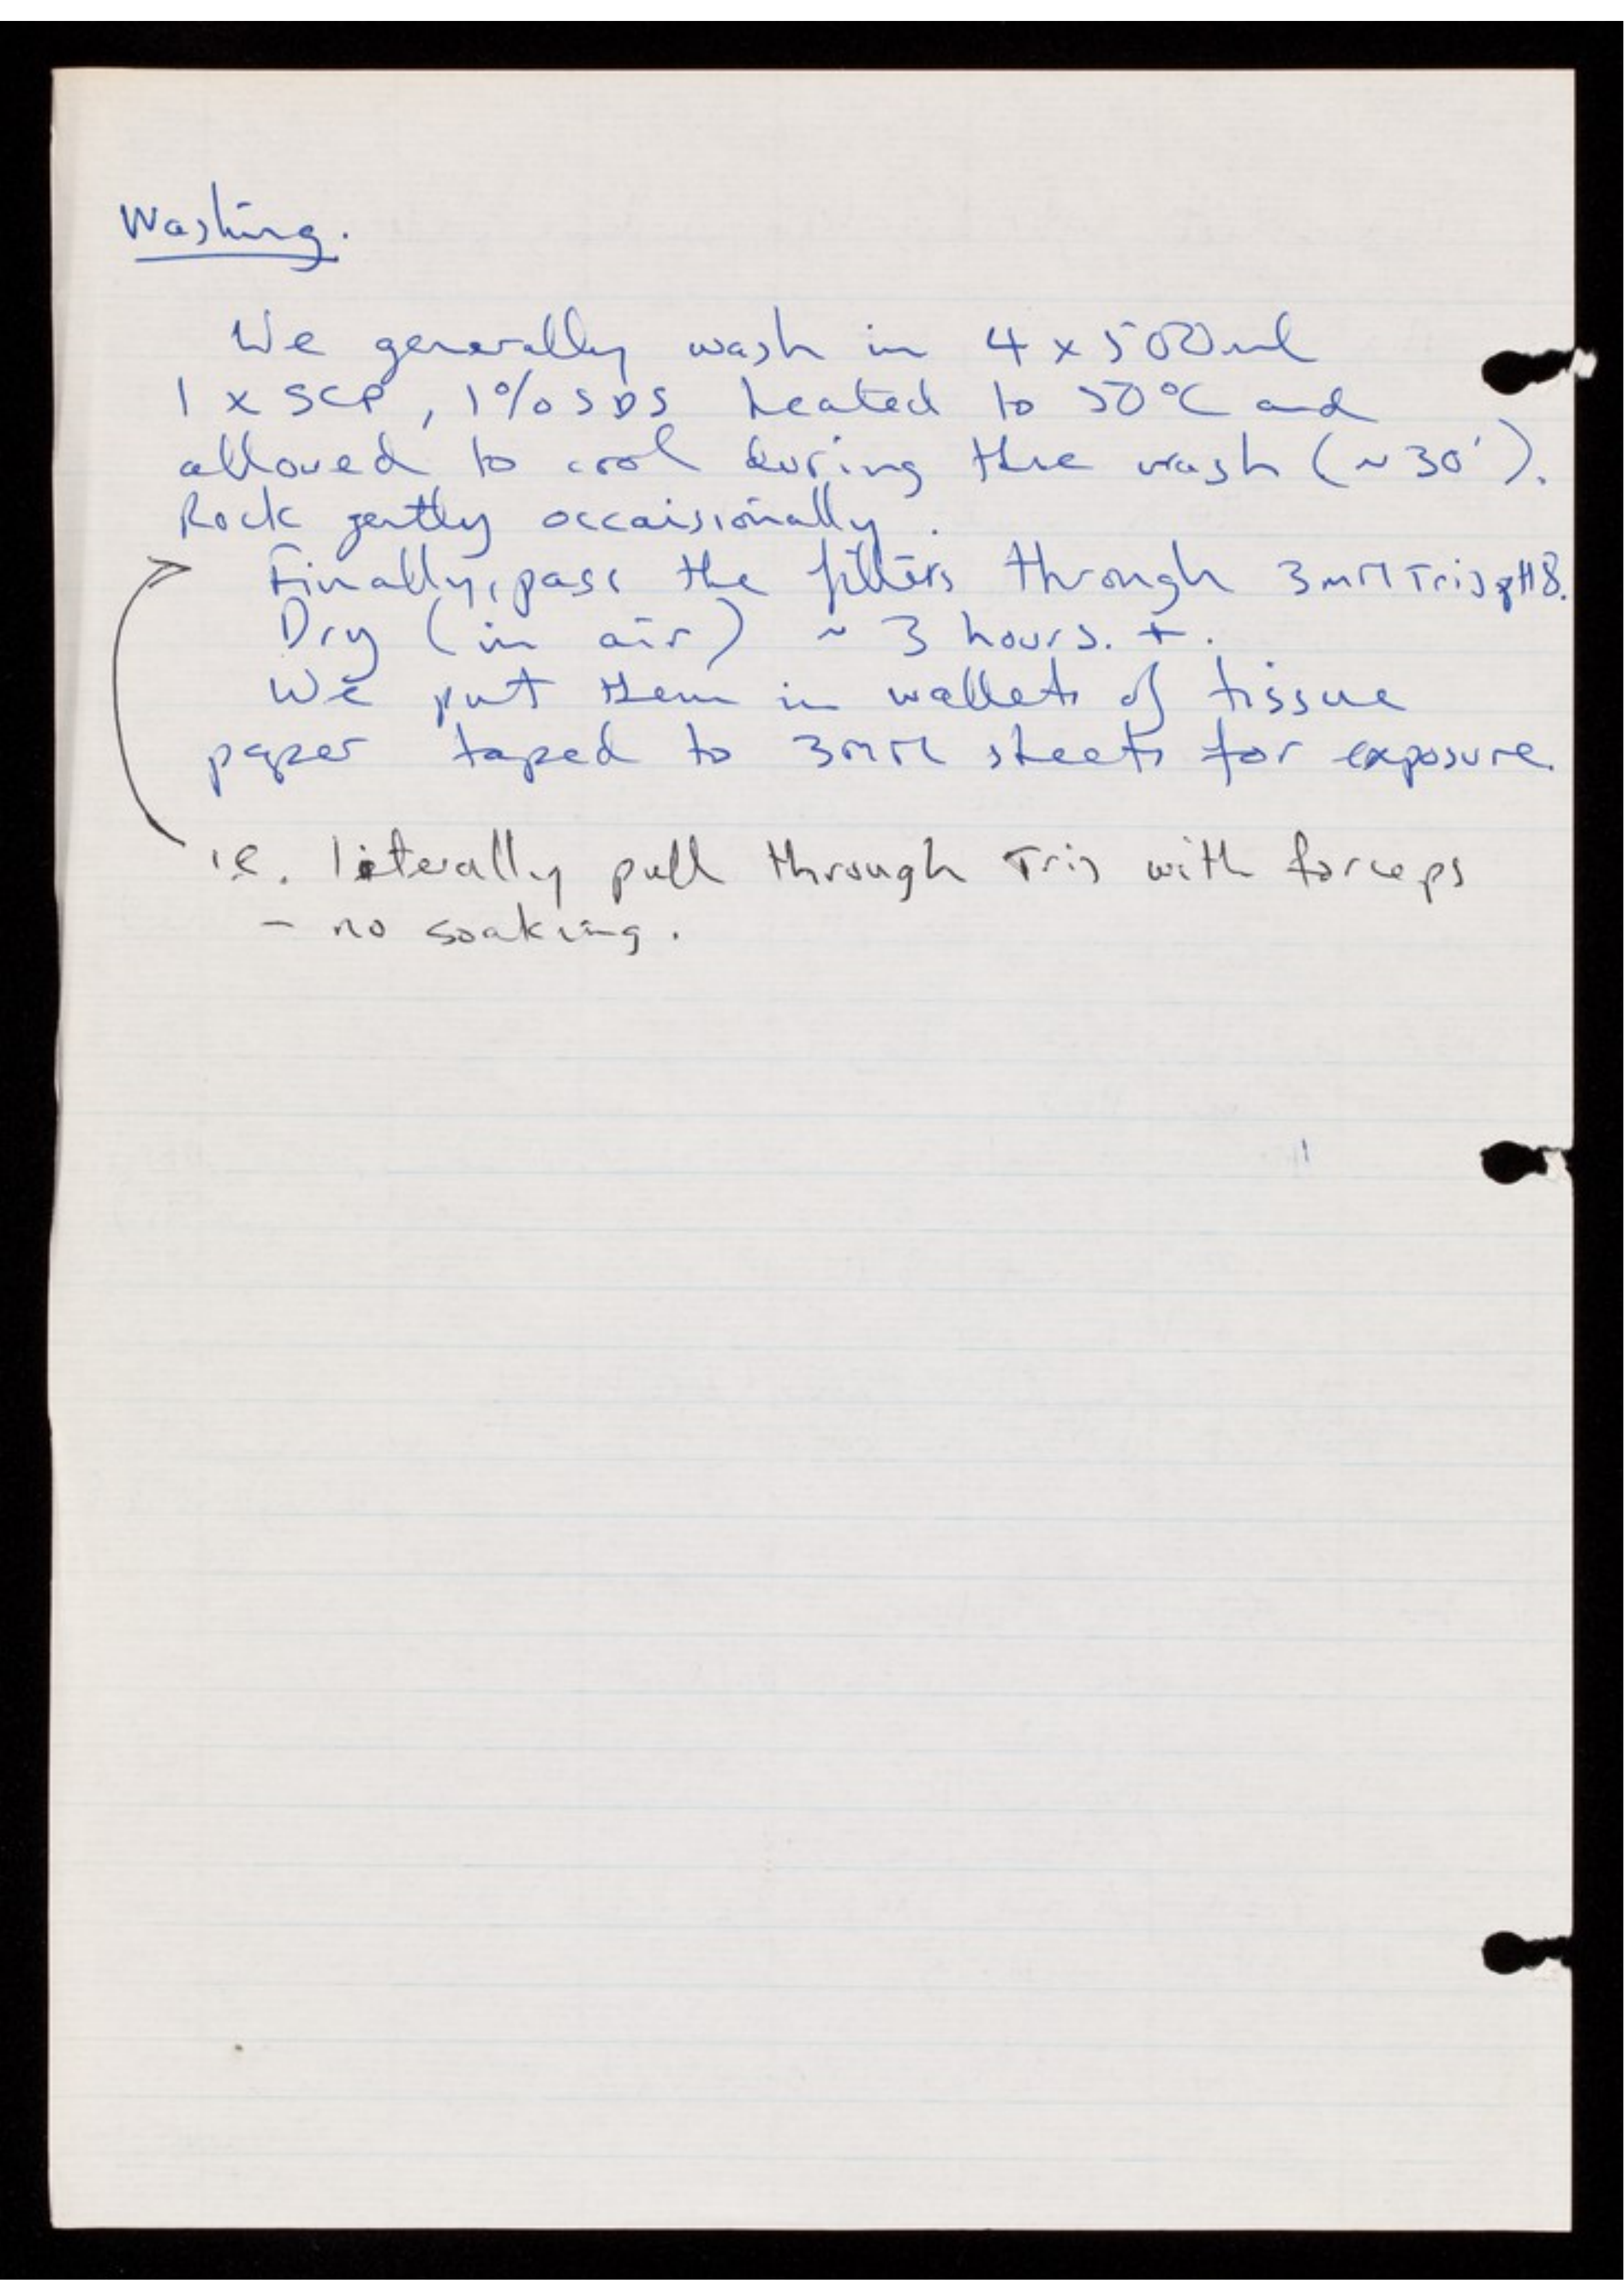 Washing.
We generally wash in 4 x 500ml
1 x SCP, 1% SDS heated to 50°C and
allowed to cool during the wash (~30').
Rock gently occaisionally.
Finally, pass the filters through 3mM Tris pH8.
Dry (in air) ~ 3 hours. +.
We put them in wallets of tissue
paper taped to 3MM sheets for exposure.
i.e. literally pull through Tris with forceps
- no soaking.